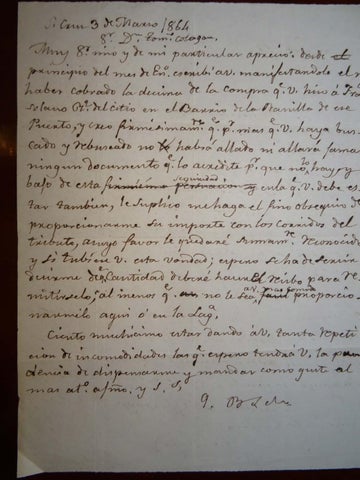 S. Cruz 3 de Marzo 1864
Sr. Dn. Tomas Cologan.
Muy Sr. mio y de mi particular aprecio: desde el
principio del mes de En.o escribi a v. manifestandole el
haber cobrado la decima de la compra q.e v. hizo á
del citio en el Barrio de la Ranilla de ese
Puerto, y creo firmisimam.te q.e p.r mas q.e v. haya bus-
cado y rebuscado no ha hallado ni allará jamas
ningun documento q.e lo acredite p.r que no hay; y
bajo de esta seguridad en la q.e v. debe es-
tar tambien, le suplico me haga el fino obsequio de
proporcionarme su importe con los corridos del
tributo, a cuyo favor le quedaré sumam.te reconocido
y si tubiese v. esta vondad; espero se ha de servir
decirme q.e cantidad deberé hacer el recibo para re-
mitirselo; al menos q.e no le sea a v. mas comodo proporcio
narmelo aqui ó en la Lag.a
Ciento muchisimo estar dando á v. tanta repeti
cion de incomodidades las q.e espero tendrá v. la pru-
dencia de dispensarme y mandar como guste al
mas at.o afmo. y S. S.
q. B S M.